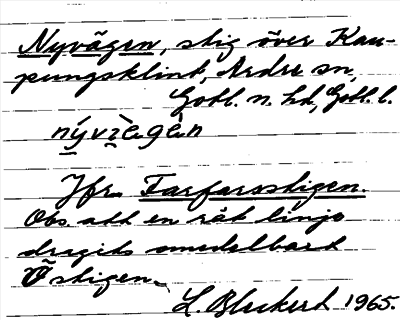 Nyvägen, stig över Kau-
pungsklint, Ardre sn,
Gotl. n. hd, Gotl. l.
nýviegen
Jfr Farfarsstigen.
Obs. att en rät linje
dragits omedelbart
Ö stigen.
L. Bleckert 1965.